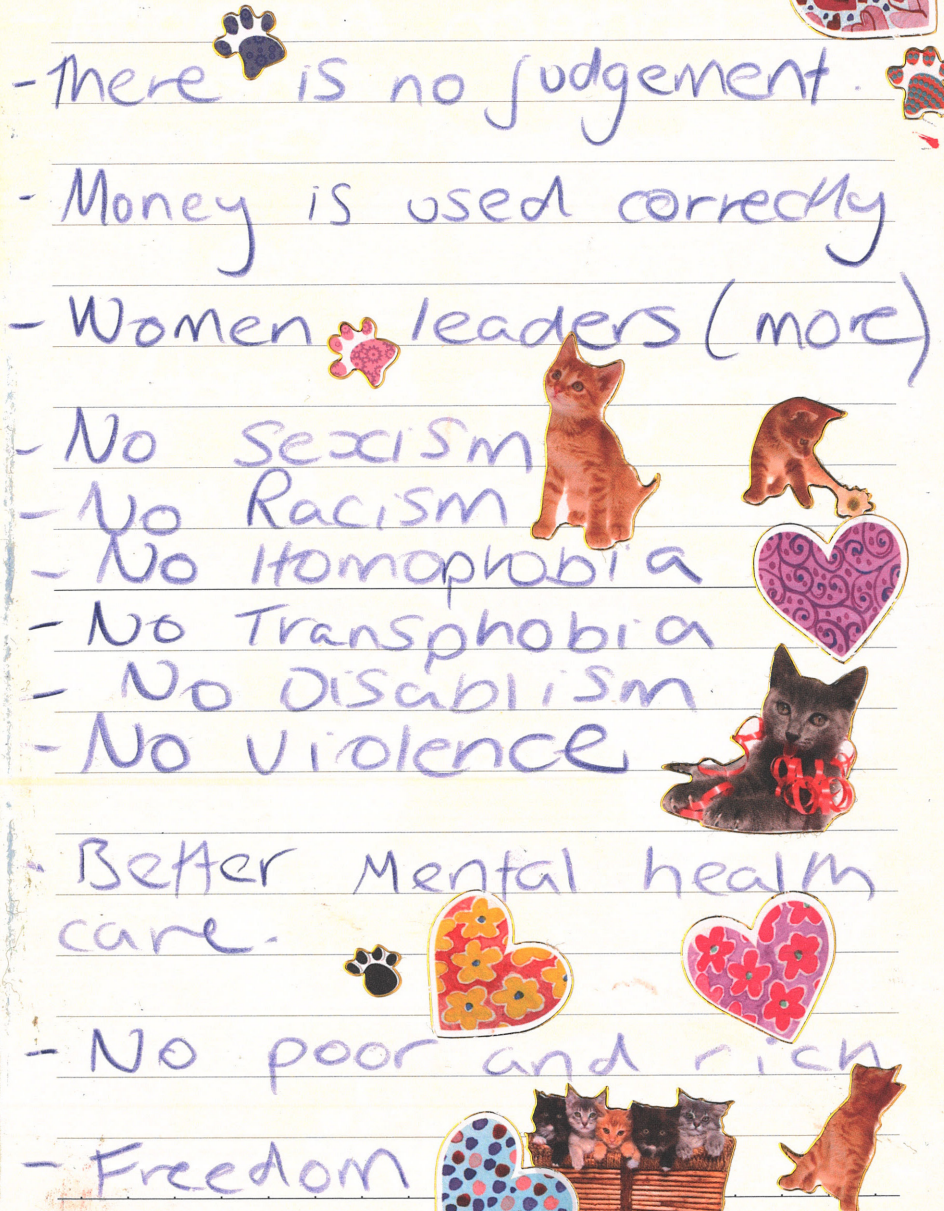 - There is no judgement.
- Money is used correctly
- Women leaders (more)
- No Sexism
- No Racism
- No Homophobia
- No Transphobia
- No Disablism
- No Violence
- Better Mental health
care.
- No poor and rich
- Freedom